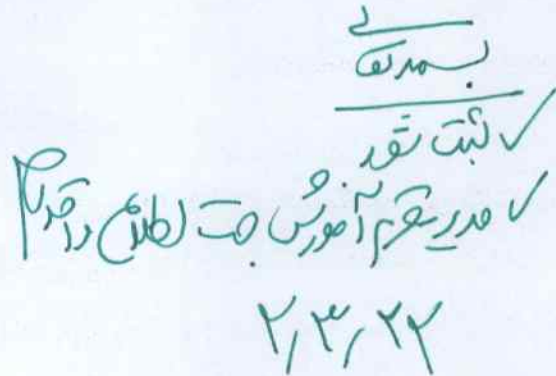 بسمه تعالی
✓ ثبت شود
✓ مدیر محترم آموزش جهت اطلاع و اقدام
۲٫۳٫۲۲